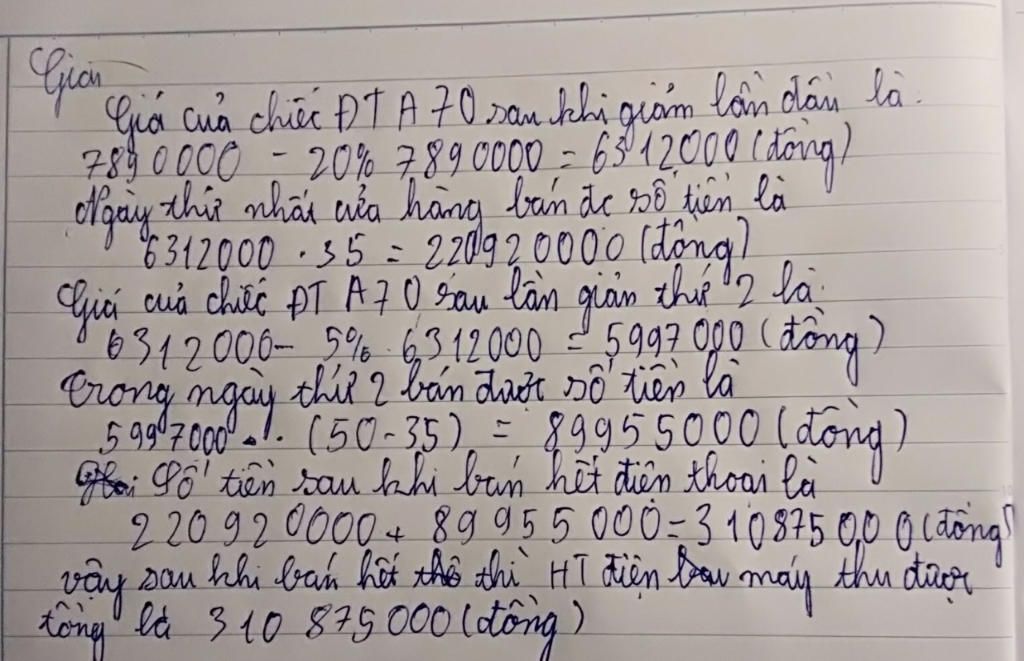 Giải
Giá của chiếc ĐT A70 sau khi giảm lần đầu là:
7890000 - 20% 7890000 = 6312000 (đồng)
Ngày thứ nhất cửa hàng bán đc số tiền là
6312000 . 35 = 220920000 (đồng)
Giá của chiếc ĐT A70 sau lần giản thứ 2 là:
6312000 - 5% . 6312000 = 5997000 (đồng)
trong ngày thứ 2 bán được số tiền là
5997000 . (50-35) = 89955000 (đồng)
Số tiền sau khi bán hết điện thoại là
220920000 + 89955000 = 310875000 (đồng)
vậy sau khi bán hết thì HT điện máy thu được
tổng là 310 875000 (đồng)